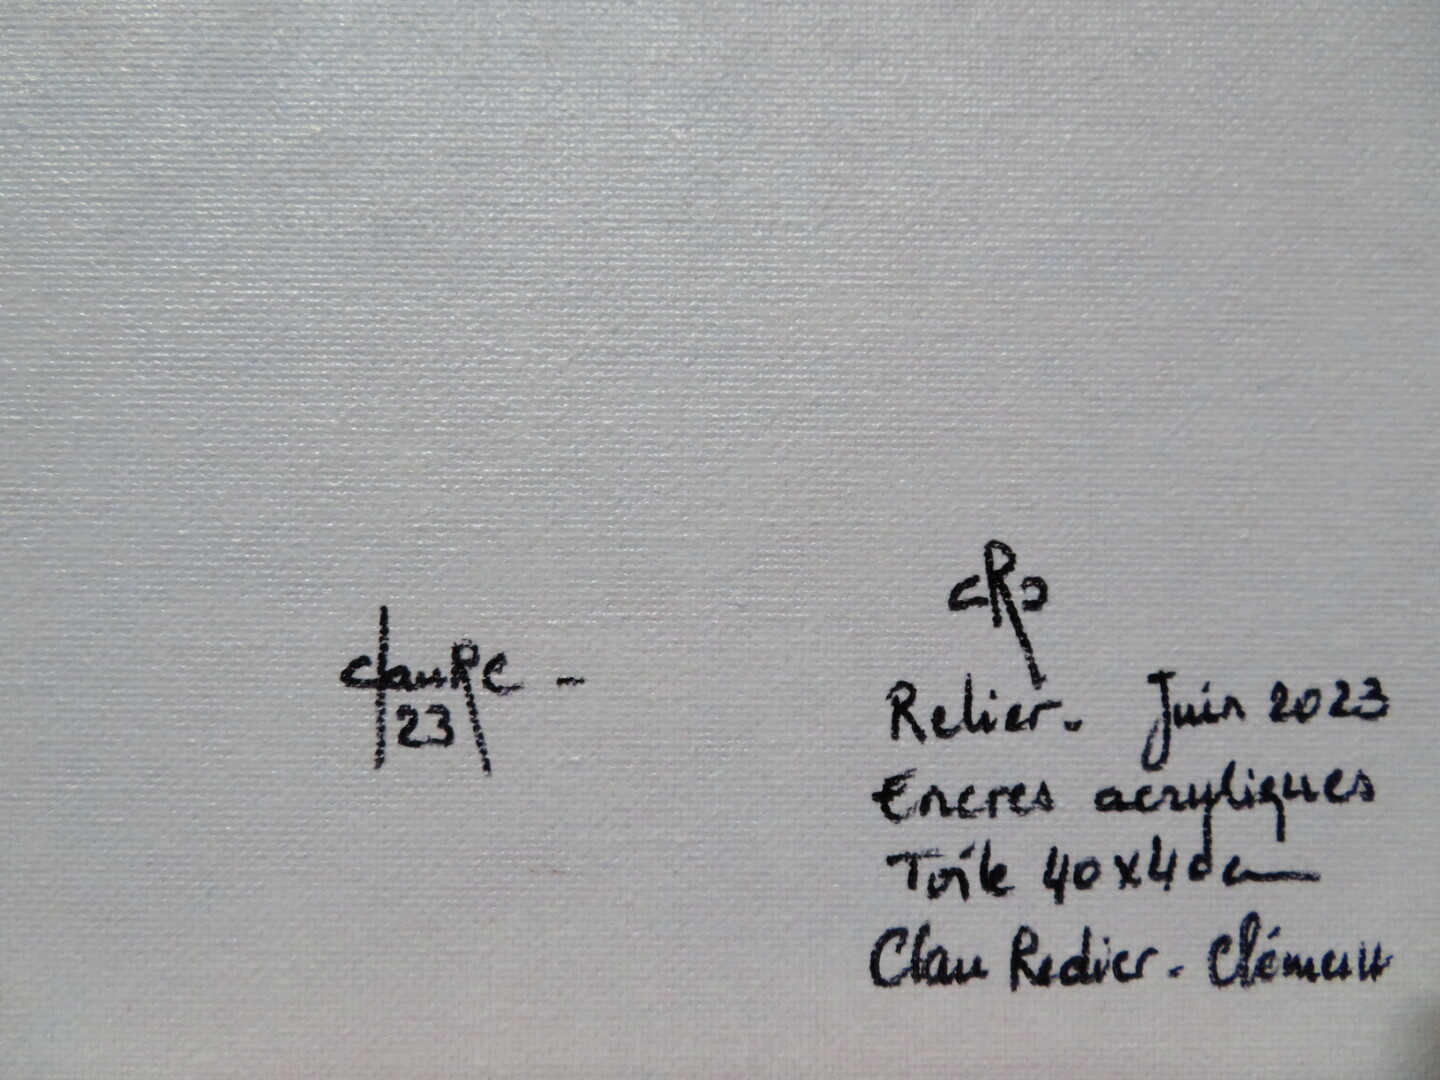 clauRC -
23
CRC
Relier. Juin 2023
Encres acryliques
Toile 40x40cm
Clau Redier - Clément